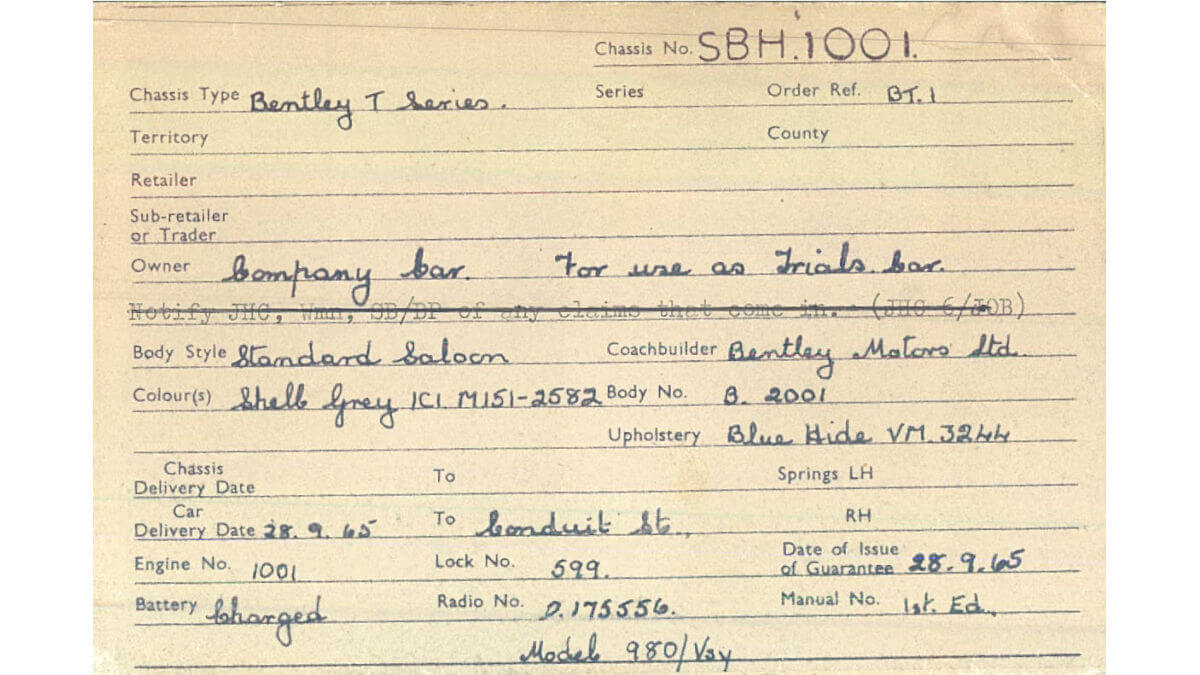 Chassis No. SBH.1001.
Chassis Type Bentley T Series. Series Order Ref. BT.1
Territory County
Retailer
Sub-retailer
or Trader
Owner Company Car. For use as Trials Car.
Notify JHC, Wmn, SB/DP of any claims that come in. (JHC 6/JOB)
Body Style Standard Saloon Coachbuilder Bentley Motors Ltd.
Colour(s) Shell Grey ICI. M151-2582 Body No. B. 2001
Upholstery Blue Hide VM. 3244
Chassis
Delivery Date To Springs LH
Car
Delivery Date 28. 9. 65 To Conduit St., RH
Engine No. 1001 Lock No. 599. Date of Issue
of Guarantee 28.9.65
Battery Charged Radio No. D.175556. Manual No. 1st. Ed.
Model 980/